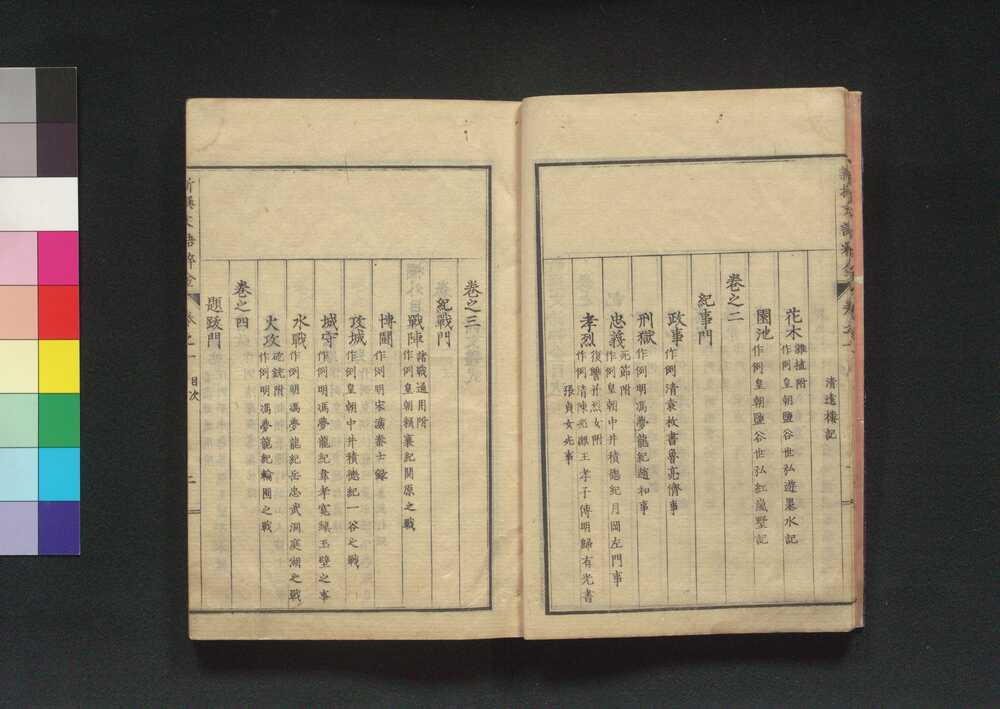 清遠樓記
花木 雜植附
作例皇朝鹽谷世弘遊墨水記
園池 作例皇朝鹽谷世弘紅嵐墅記
卷之二
紀事門
政事 作例清袁枚書魯亮儕事
刑獄 作例明馮夢龍紀趙和事
忠義 死節附
作例皇朝中井積德紀月岡左門事
孝烈 復讐幷烈女附
作例清陳兆麒王孝子傳明歸有光書
張貞女死事
卷之三
紀戰門
戰陣 諸戰通用附
作例皇朝賴襄紀関原之戰
博鬪 作例明宋濂秦士錄
攻城 作例皇朝中井積德紀一谷之戰
城守 作例明馮夢龍紀韋孝寬繰玉壁之事
水戰 作例明馮夢龍紀岳忠武洞庭湖之戰
火攻 砲銃附
作例明馮夢龍紀輪囤之戰
卷之四
題跋門
目次
二